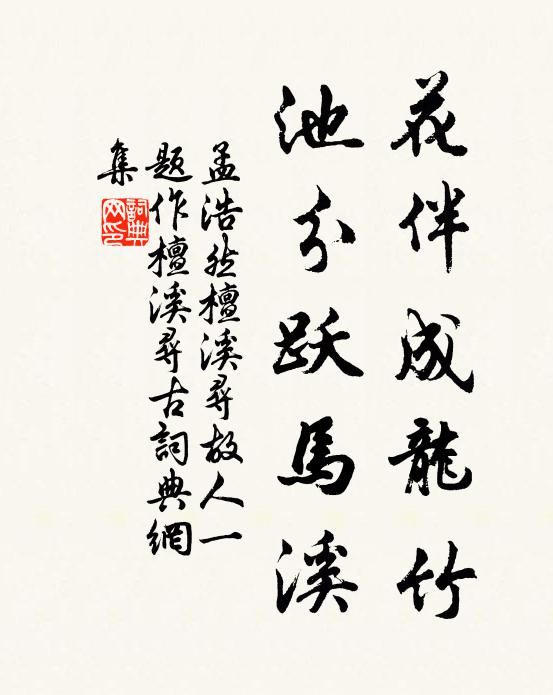 花伴成龍竹
池分跃馬溪
孟浩然檀溪尋故人一
题作檀溪尋古詞典網
集
詞典网印